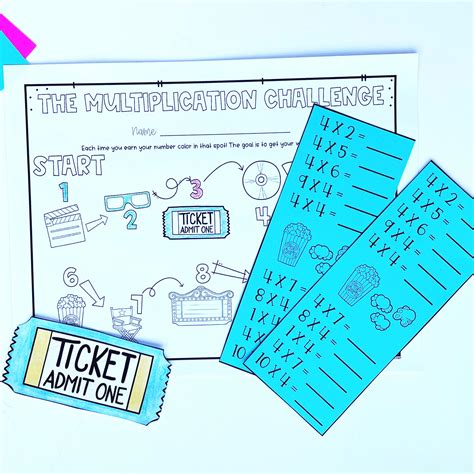 THE MULTIPLICATION CHALLENGE
Name:
Each time you earn your number color in that spot! The goal is to get your
START
1
2
3
TICKET
ADMIT ONE
6
7
8
TICKET
ADMIT ONE
4x2=
4x5=
4x6=
9x4=
4x4=
4x7=
8x4=
10x4=
4x2=
4x5=
4x6=
9x4=
4x4=
4x7=
8x4=
1x4=
4x
10x4=